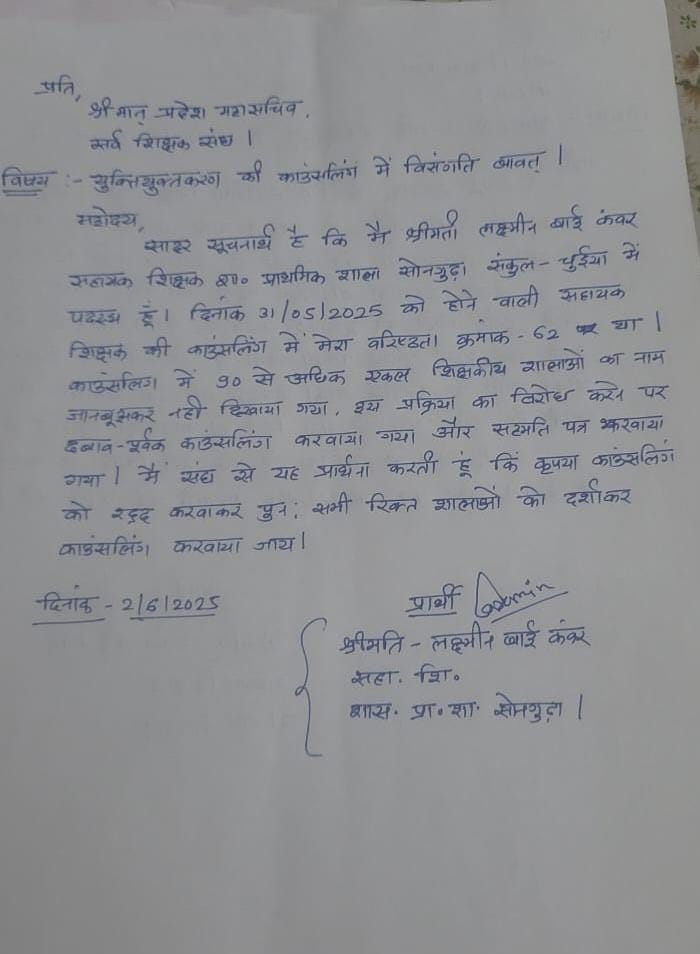 प्रति,
श्रीमान् प्रदेश महासचिव,
सर्व शिक्षक संघ।
विषय :- युक्तियुक्तकरण की काउंसलिंग में विसंगति बाबत्।
महोदय,
सादर सूचनार्थ है कि मै श्रीमती लक्ष्मीन बाई कंवर
सहायक शिक्षक शा० प्राथमिक शाला सोनगुढ़ा संकुल - चुईया में
पदस्थ हूँ। दिनांक 31/05/2025 को होने वाली सहायक
शिक्षक की काउंसलिंग में मेरा वरिष्ठता क्रमांक - 62 था।
काउंसलिंग में 90 से अधिक एकल शिक्षकीय शालाओं का नाम
जानबूझकर नही दिखाया गया, इस प्रक्रिया का विरोध करने पर
दबाव-पूर्वक काउंसलिंग करवाया गया और सहमति पत्र भरवाया
गया। मैं संघ से यह प्रार्थना करती हूं कि कृपया काउंसलिंग
को रद्द करवाकर पुन: सभी रिक्त शालाओं को दर्शाकर
काउंसलिंग करवाया जाय।
दिनांक - 2/6/2025
प्रार्थी
श्रीमति - लक्ष्मीन बाई कंवर
सहा. शि.
शास. प्रा. शा. सोनगुढ़ा।